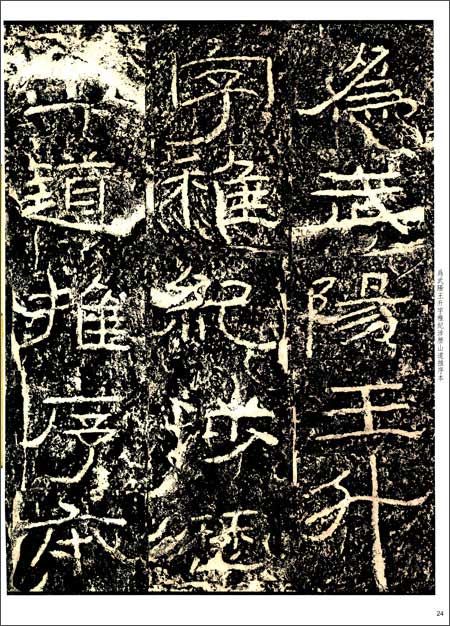 爲武陽王升
字稚紀涉歷
山道推序本
爲武陽王升字稚紀涉歷山道推序本
24